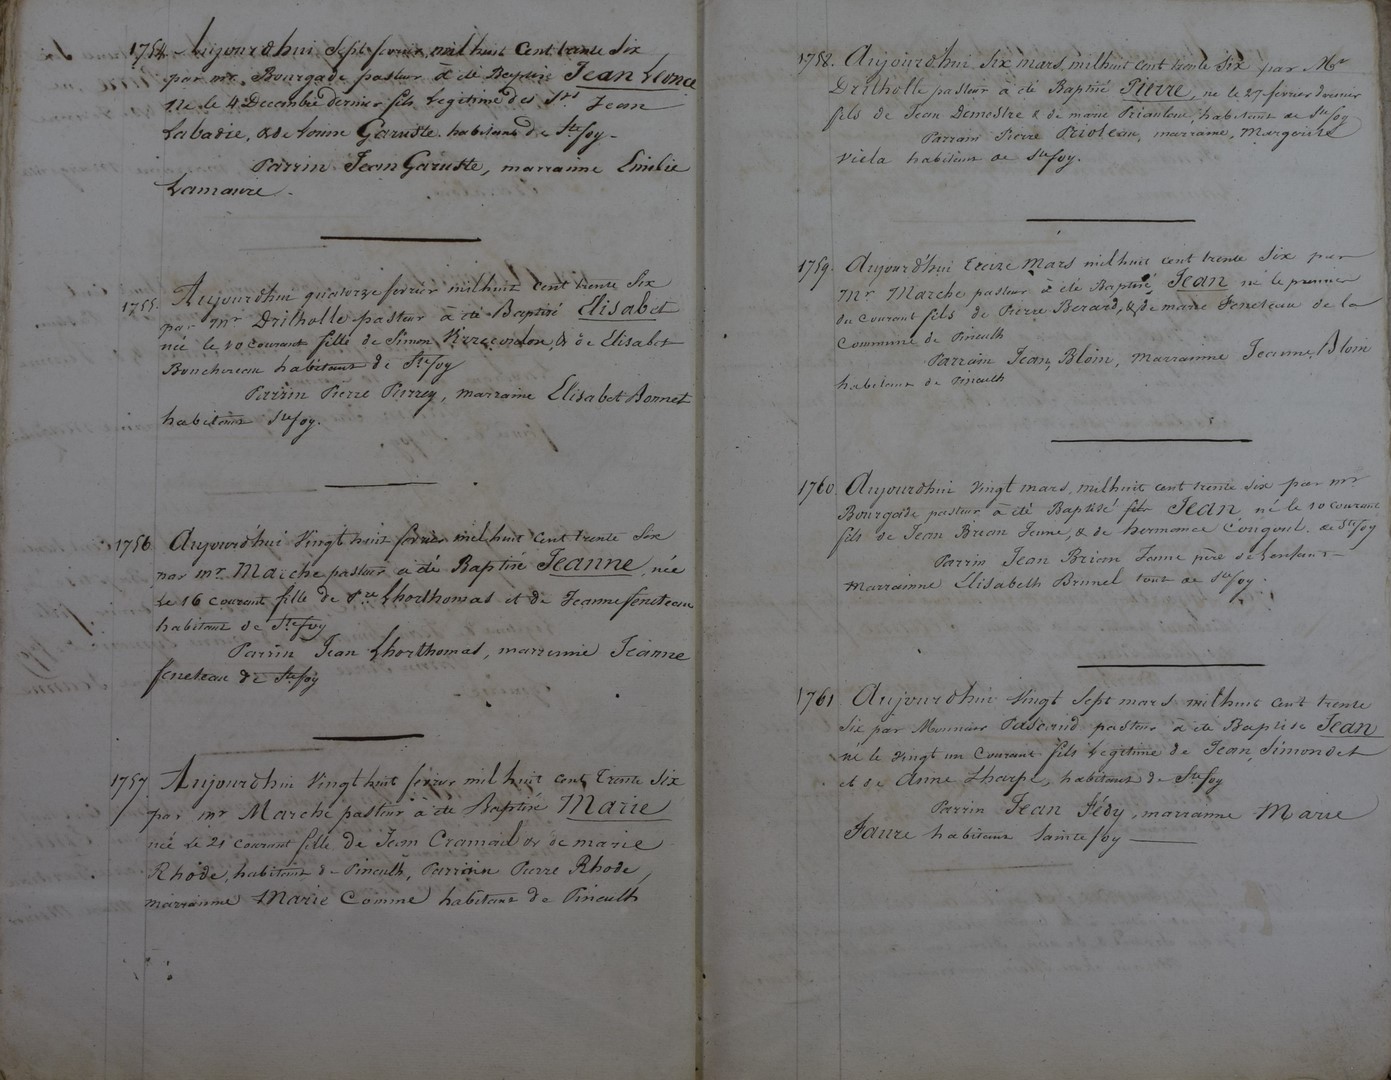 1754. Aujourdhui Sept fevrier mil huit Cent trente Six
par mr. Bourgade pasteur à été Baptisé Jean Léonce
né le 4 Decembre dernier fils Legitime des Srs Jean
Labadie, & de Garuste habitans de Ste foy -
Parrin Jean Garuste, marrainne Emelie
Lamaure.
1755. Aujourdhui quatorze fevrier mil huit Cent trente Six
par mr Drilholle pasteur à été Baptisé Elisabet
née le 10 courant fille de Simon & de Elisabet
habitant de Ste foy
Parrin Pierre marraine Elisabet Bonnet
habitant Ste foy.
1756 Aujourd'hui Vingt huit fevrier mil huit Cent trente Six
par mr. Marche pasteur à été Baptisé Jeanne, née
Le 16 courant fille de Pre Lhorthomas et de Jeanne feneteau
habitant de Ste foy
Parrin Jean Lhorthomas, marrainne Jeanne
feneteau de Ste foy
1757 Aujourdhui Vingt huit fevrier mil huit cent Trente Six
par mr Marche pasteur à été Baptisé Marie
née le 21 courant fille de Jean & de marie
Rhode, habitant de Pineuilh, Parrain Pierre Rhode,
marrainne Marie Comme habitant de Pineuilh
1758. Aujourdhui Six mars mil huit cent trente Six par Mr
Drilholle pasteur à été Baptisé Pierre, né le 27 fevrier dernier
fils de Jean Demestre & de marie habitant de Ste foy
Parrain Pierre Prioleau, marraine, Margerite
Viela habitant de Ste foy.
1759. Aujourdhui treize Mars mil huit cent trente Six par
Mr Marche pasteur à été Baptisé Jean né le premier
du courant fils de Pierre Berard, & de marie Feneteau de la
Commune de Pineuilh
Parrain Jean Bloin, marrainne Jeanne Bloin
habitant de Pineuilh
1760 Aujourdhui Vingt mars, mil huit cent trente six par mr
Bourgade pasteur à été Baptisé Jean né le 10 courant
fils de Jean Brian Jeune, & de hermance de Ste foy
Parrin Jean Briam Jeune père de -
marrainne Elisabeth Brunel tout de Ste foy.
1761 Aujourdhui Vingt Sept mars mil huit cent trente
Six par Monsieur pasteur à été Baptisé Jean
né le vingt un Courant fils Legitime de Jean Simondet
et de Anne habitant de Ste foy
Parrin Jean Fédy, marrainne Marie
Faure habitant Sainte foy